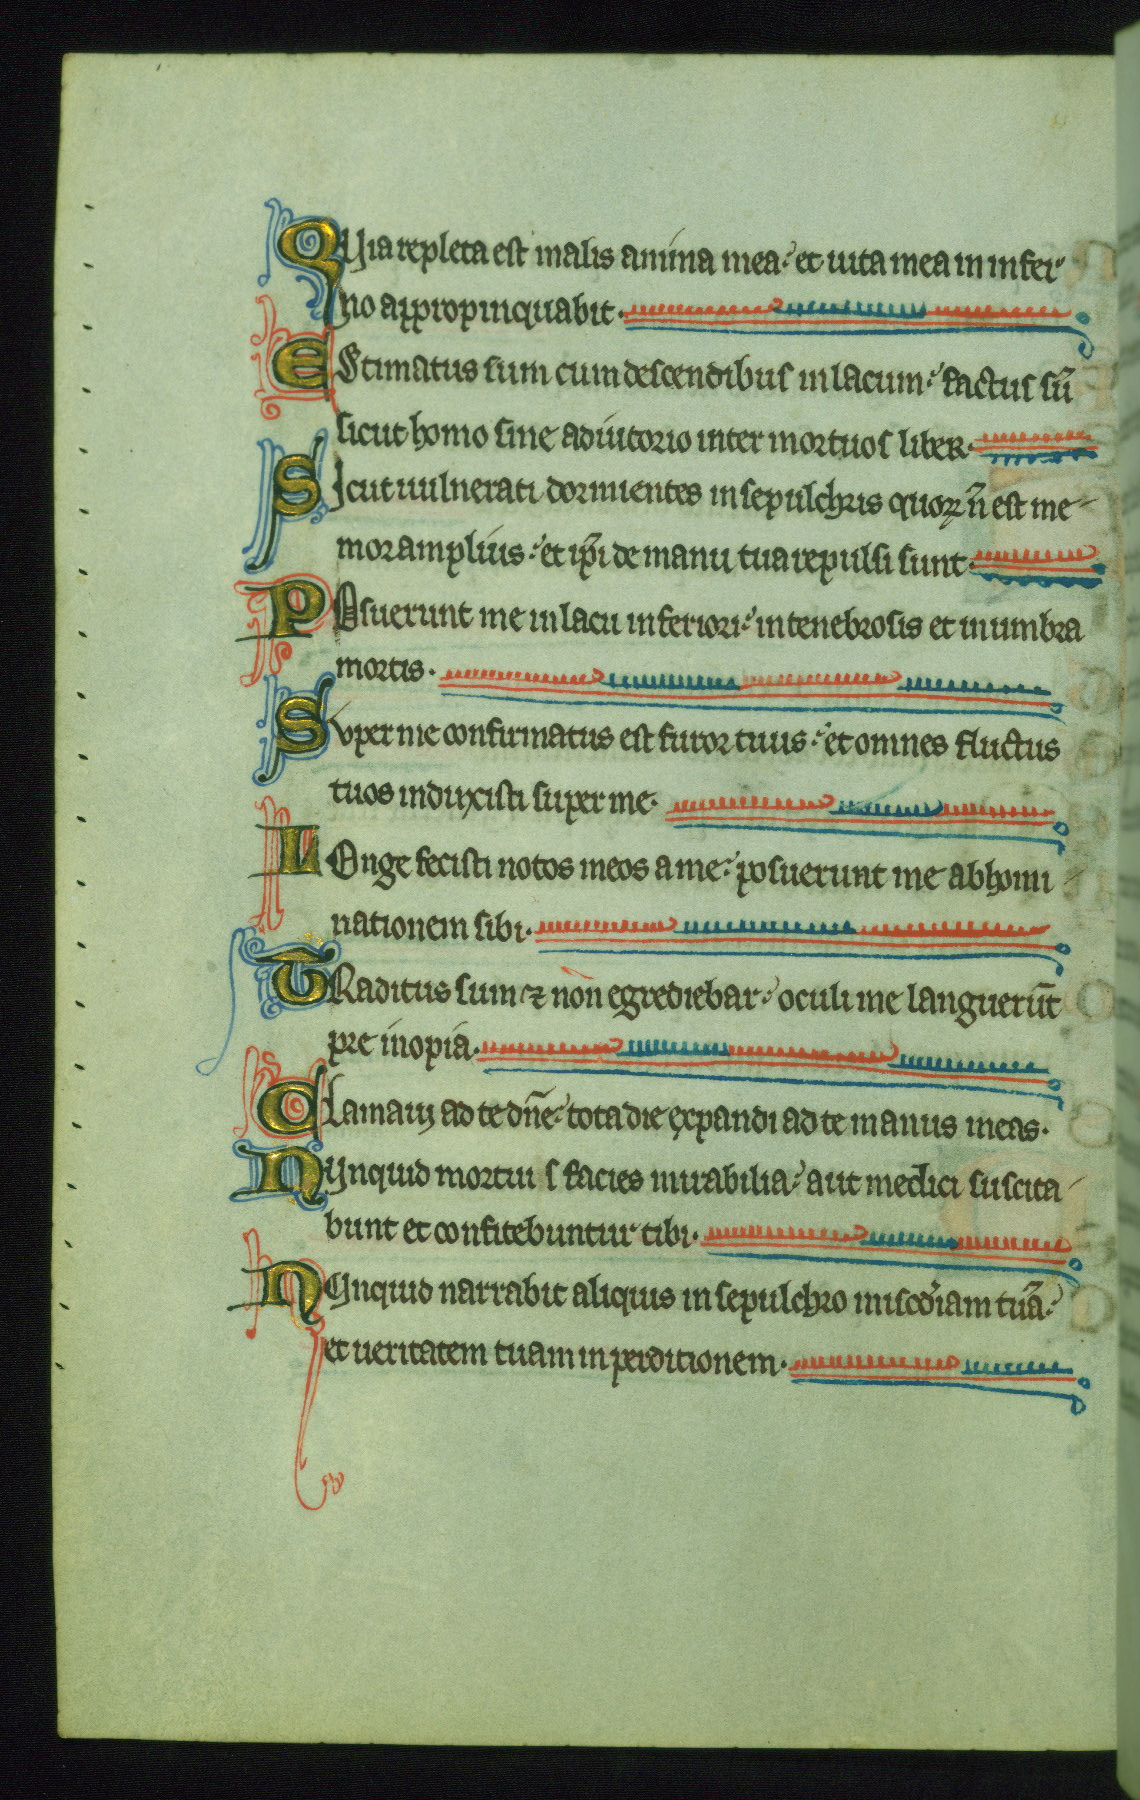 QUia repleta est malis anima mea: et uita mea in infer
no appropinquabit.
EStimatus sum cum descendibus in lacum: factus sū
sicut homo sine adiutorio inter mortuos liber.
SIcut uulnerati dormientes in sepulchris quoꝝ ñ est me
mor amplius: et ip̄i de manu tua repulsi sunt.
POsuerunt me in lacu inferiori: in tenebrosis et in umbra
mortis.
SUper me confirmatus est furor tuus: et omnes fluctus
tuos induxisti super me.
LOnge fecisti notos meos a me: posuerunt me abhomi
nationem sibi.
TRaditus sum ⁊ non egrediebar: oculi me languerūt
pre inopia.
CLamaui ad te dñe: tota die expandi ad te manus meas.
NUnquid mortui s facies mirabilia: aut medici suscita
bunt et confitebuntur tibi.
NUnquid narrabit aliquis in sepulchro misc̄diam tuā:
et ueritatem tuam in perditionem.